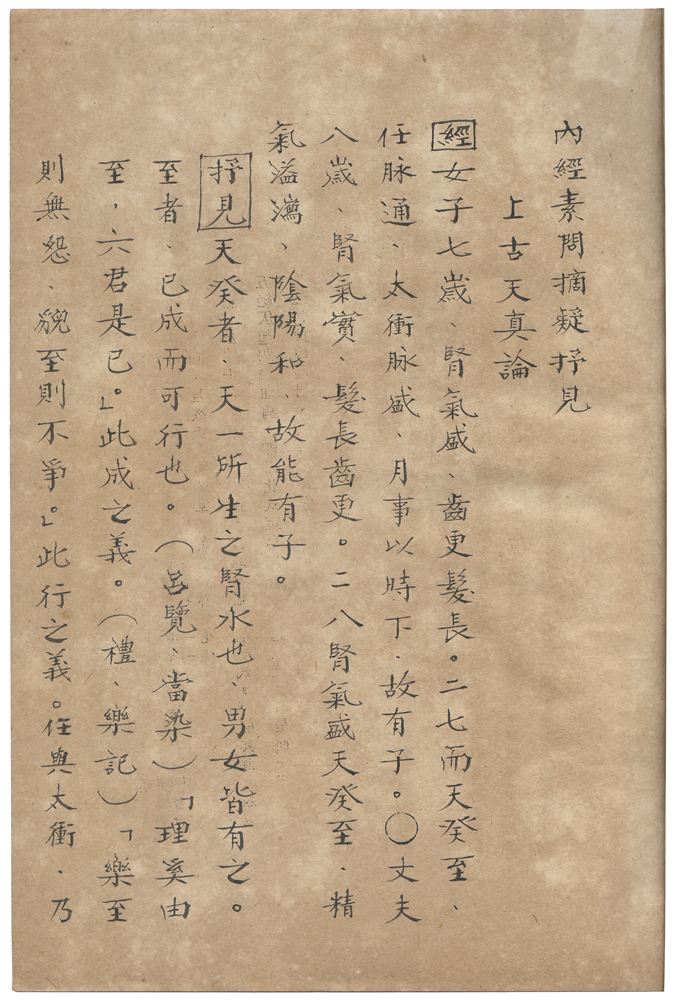 內經素問摘疑抒見
上古天真論
經女子七歲、腎氣盛、齒更髮長。二七而天癸至、
任脉通、太衝脉盛、月事以時下、故有子。○丈夫
八歲、腎氣實、髮長齒更。二八腎氣盛天癸至、精
氣溢瀉、陰陽和、故能有子。
抒見天癸者、天一所生之腎水也、男女皆有之。
至者、已成而可行也。（呂覽、當染）「理奚由
至，六君是已。」此成之義。（禮、樂記）「樂至
則無怨、貌至則不爭。」此行之義。任與太衝、乃